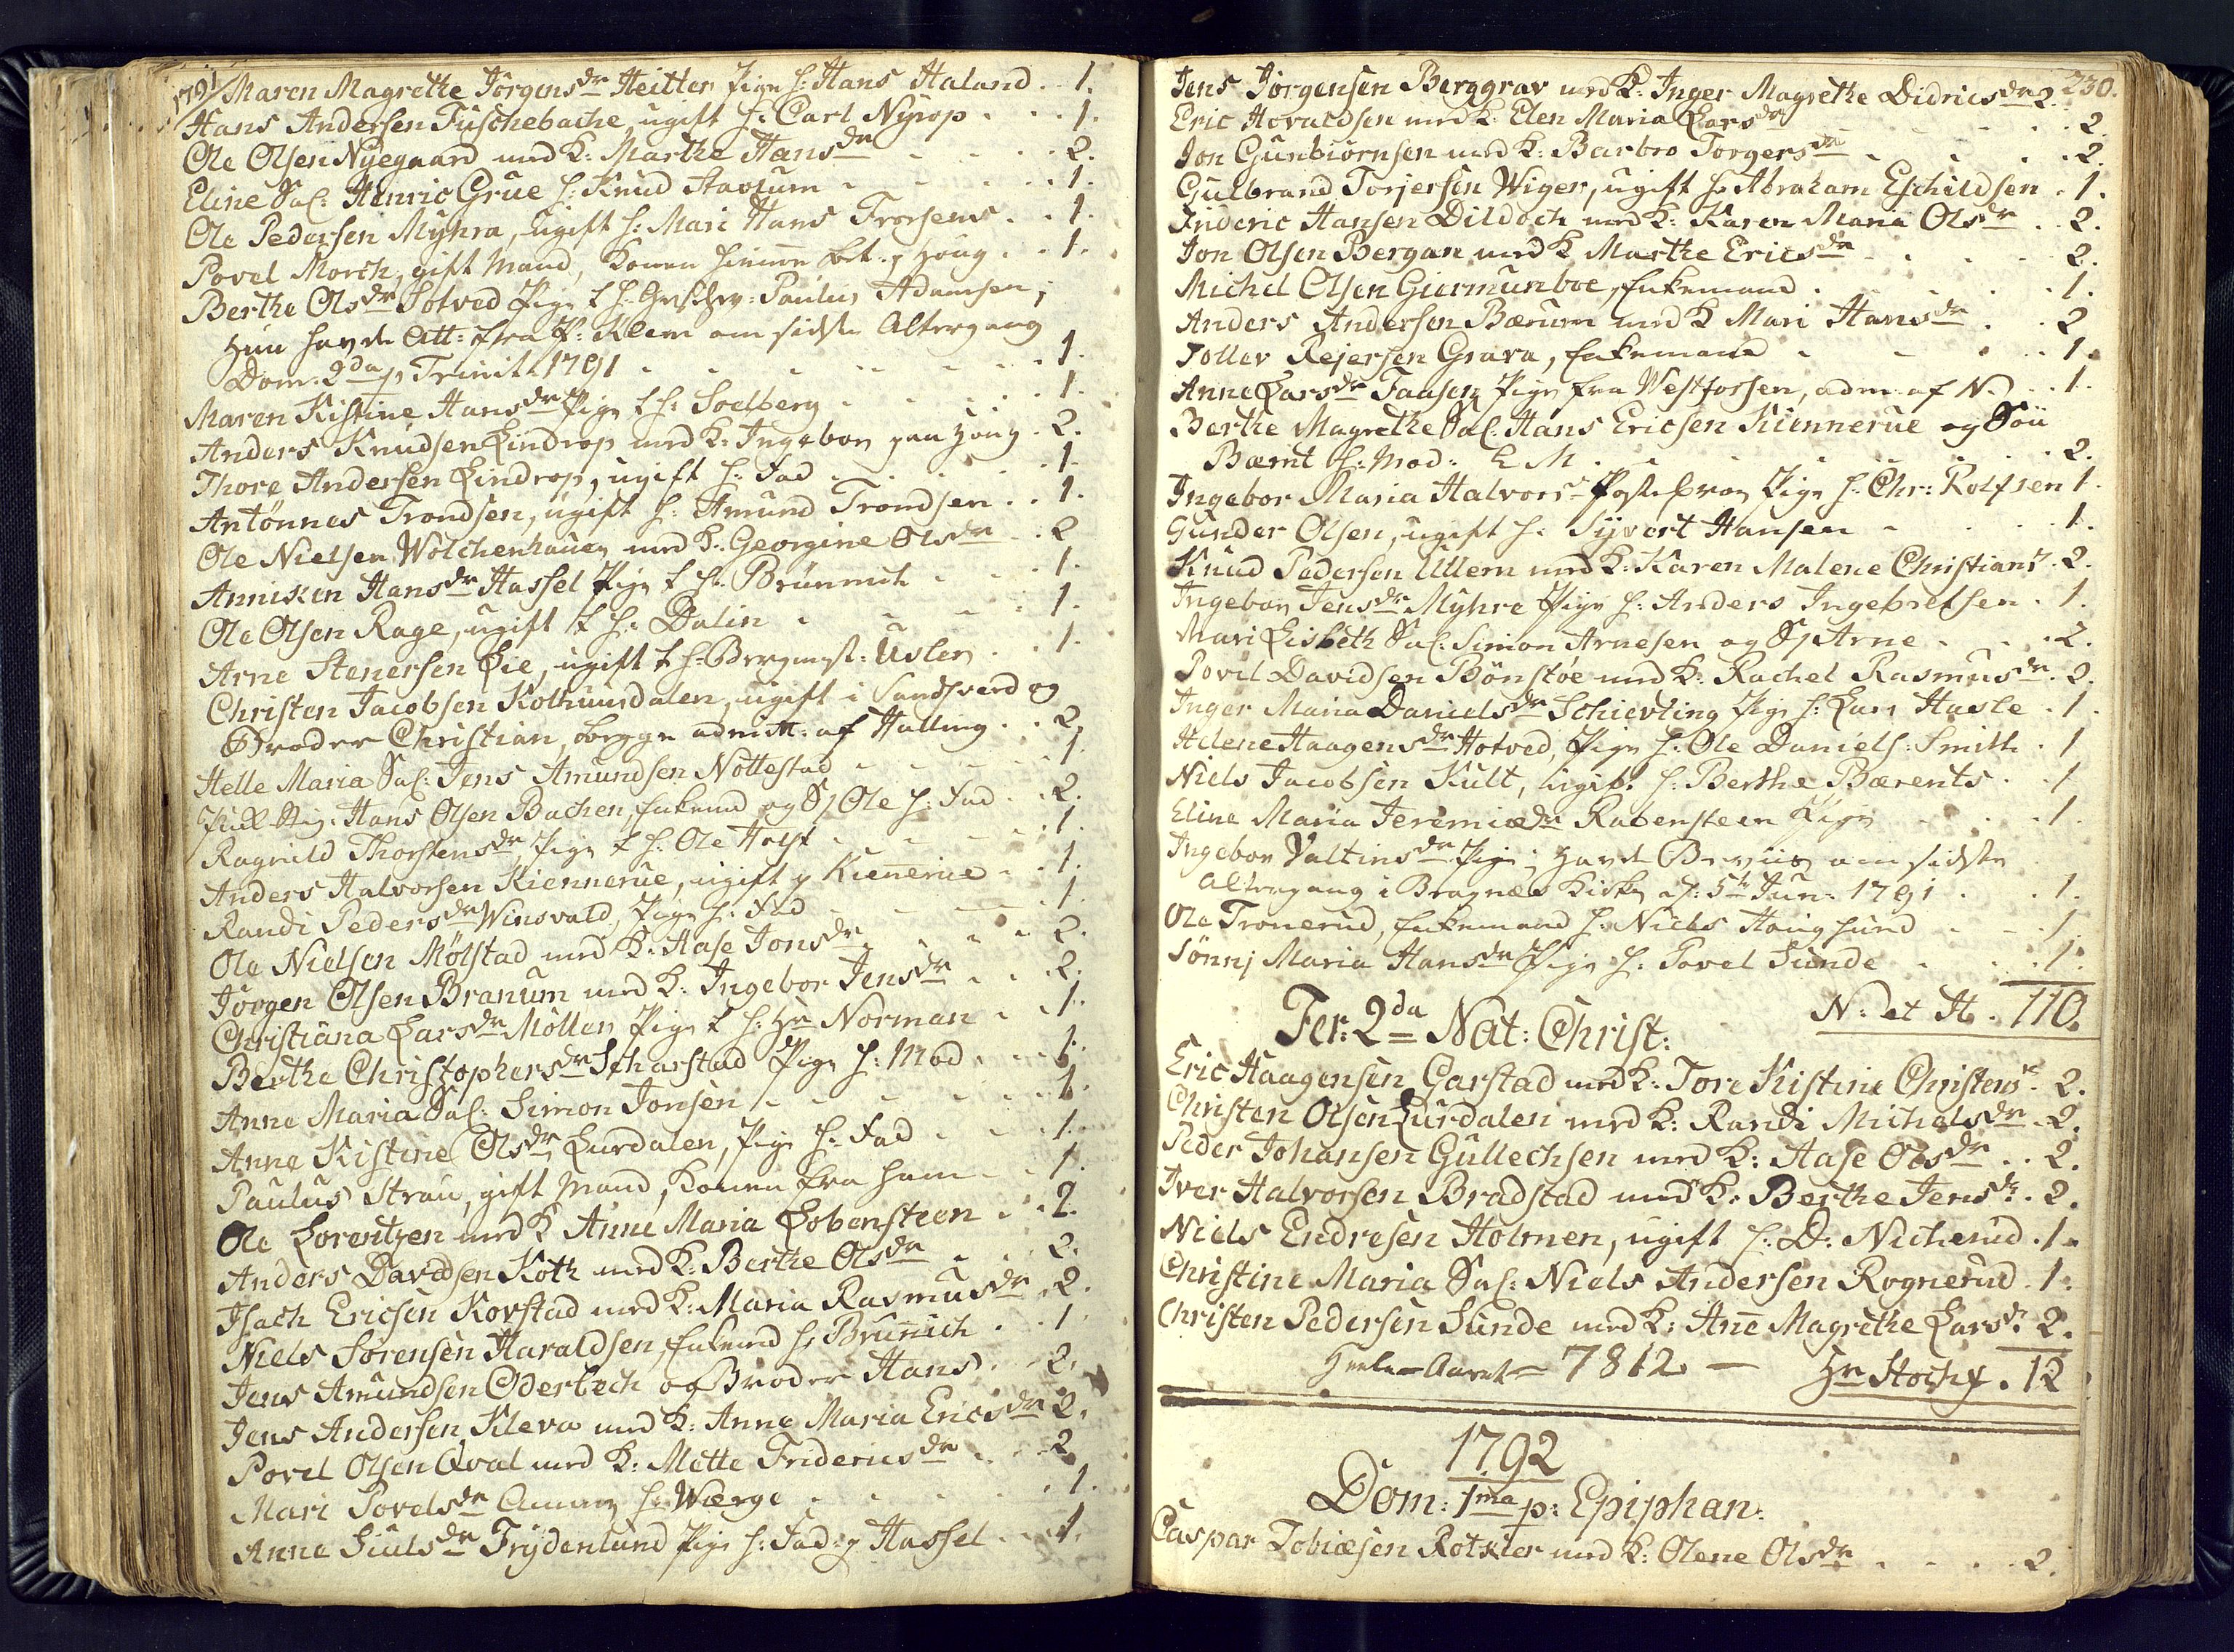 1791
Maren Magrethe Jörgensdr Heitler Pige h: Hans Haland . 1.
Hans Andersen Tuschebache, ugift h: Carl Nyrop . . . 1.
Ole Olsen Nyegaard med K: Marthe Hansdr . . . 2.
Eline Sal: Henric Grue h: Knud Stavlum . . . 1.
Ole Pedersen Myhra, ugift h: Mari Hans Trorsens . . 1.
Povel Morch, gift Mand, Konen hiemme . . 1.
Berthe Olsdr Solved Pige t h: Geschw: Paulus Adamsen,
Hun havde Att: fra P: Klem om sidste Altergang
Dom: 2da p Trinit 1791 . . . 1.
Maren Kistine Hansdr Pige t h: Soelberg . . . 1.
Anders Knudsen Lindrop med K: Ingebor paa Houg . 2.
Thore Andersen Lindrop, ugift h: Fad . . . 1.
Antönnes Trondsen, ugift h: Amund Trondsen . . 1.
Ole Nielsen Wolchenhauer med K: Georgine Olsdr . . 2
Anniken Hansdr Hassel Pige t h: Brünnich . . 1.
Ole Olsen Rage, ugift t h: Dalin . . . 1.
Arne Stenersen Lie, ugift t h: Bergmest: Usler . . 1.
Christen Jacobsen Kolhuusdalen, ugift i Sandsverd og
Broder Christian, begge admitt: af Halling . . 2.
Helle Maria Sal: Jens Amundsen Nöttestad . . . 1.
Hans Olsen Bachen, Enkemd og S/ Ole h: Fad . . 2.
Ragnild Thorstensdr Pige t h: Ole Holst . . . 1.
Anders Halvorsen Kiennerue, ugift p Kienerue . . 1.
Randi Pedersdr Winsvold, Pige h: Fad . . . 1.
Ole Nielsen Mølstad med K: Aase Jonsdr . . . 2.
Jörgen Olsen Branum med K: Ingebor Jensdr . . . 2.
Christiana Larsdr Möller, Pige t h: Hr Norman . . 1.
Berthe Christophersdr Scharstad Pige h: Mod . . . 1.
Anne Maria Sal: Simon Jonsen . . . 1.
Anne Kistine Olsdr Lurdalen, Pige h: Fad . . . 1.
Paulus Strau, gift Mand, Konen fra ham . . 1.
Ole Lorentzen med K Anne Maria Lobensteen . . 2.
Anders Davidsen Koth med K: Berthe Olsdr . . . 2.
Isach Ericsen Korstad med K: Maria Rasmusdr . 2.
Niels Sörensen Haraldsen, Enkemd h: Brünnich . . 1
Jens Amundsen Oderbech og Broder Hans . . . 2.
Jens Andersen Kleva med K: Anne Maria Ericsdr 2.
Povel Olsen Qval med K: Mette Fridericsdr . . . 2
Mari Povelsdr Amme h: Wærge . . . 1.
Anne Siulsdr Frydenlund Pige h: Fad: p Hassel . . . 1.
230.
Jens Jörgensen Berggrav med K: Inger Magrethe Didricsdr 2.
Eric Hovaldsen med K: Elen Maria Larsdr . . . 2.
Jon Gunbiörnsen med K: Barbro Torgersdr . . . 2.
Gulbrand Torjersen Wiger, ugift h: Abraham Eschildsen . 1.
Frideric Hansen Dildoch med K: Karen Maria Olsdr . . 2.
Jon Olsen Bergan med K Marthe Ericsdr . . . 2.
Michel Olsen Giermunboe, Enkemand . . . 1.
Anders Andersen Bærum med K Mari Hansdr . . . 2
Toller Rejersen Grava, Enkemand . . . 1.
Anne Larsdr Faasen Pige fra Westfossen, adm: af N. . . 1.
Berthe Magrethe Sal: Hans Ericsen Kiennerue og Søn
Bærnt h: Mod: E M . . . 2.
Ingebor Maria Halvorsd Pige h: Chr: Rolfsen 1.
Gunder Olsen, ugift h: Syvert Hansen . . . 1.
Knud Pedersen Ullern med K: Karen Malene Christians . 2.
Ingebor Jensdr Myhre Pige h: Anders Ingebretsen . 1.
Mari Lisbeth Sal: Simon Arnesen og S/ Arne . . . 2.
Povel Davidsen Bönstøe med K: Rachel Rasmusdr . 2.
Inger Maria Danielsdr Schierting Pige h: Lars Hasle . 1.
Helene Haagensdr Hotved, Pige h: Ole Daniels: Smith . 1
Niels Jacobsen Kult, ugift h: Berthe Bærents . . 1
Eline Maria Jeremiædr Rabensteen Pige . . . 1.
Ingebor Valtinsdr Pige; Havde Beviis om sidste
Altergang i Bragnæs Kirke d: 5te Jun: 1791 . . 1.
Ole Tronerud, Enkemand h: Niels Haughund . . . 1.
Sönnj Maria Hansdr Pige h: Povel Sunde . . . 1.
N: et H. . 110.
Fer: 2da Nat: Christ:
Eric Haagensen Garstad med K: Tore Kistine Christensd . 2.
Christen Olsen Lurdalen med K: Randi Michelsdr . 2.
Peder Johansen Gullechsen med K: Aase Olsdr . . 2.
Iver Halvorsen Bradstad med K: Berthe Jensd . 2.
Niels Endresen Holmen, ugift h: D: Nicherud . 1.
Christine Maria Sal: Niels Andersen Rognerud . 1.
Christen Pedersen Sunde med K: Ane Magrethe Larsd . 2.
Heele Aaret = 7812 — Hr Hochf . 12
1792
Dom: 1ma p: Epiphan:
Caspar Tobiæsen Rotzler med K: Olene Olsdr . . . 2.